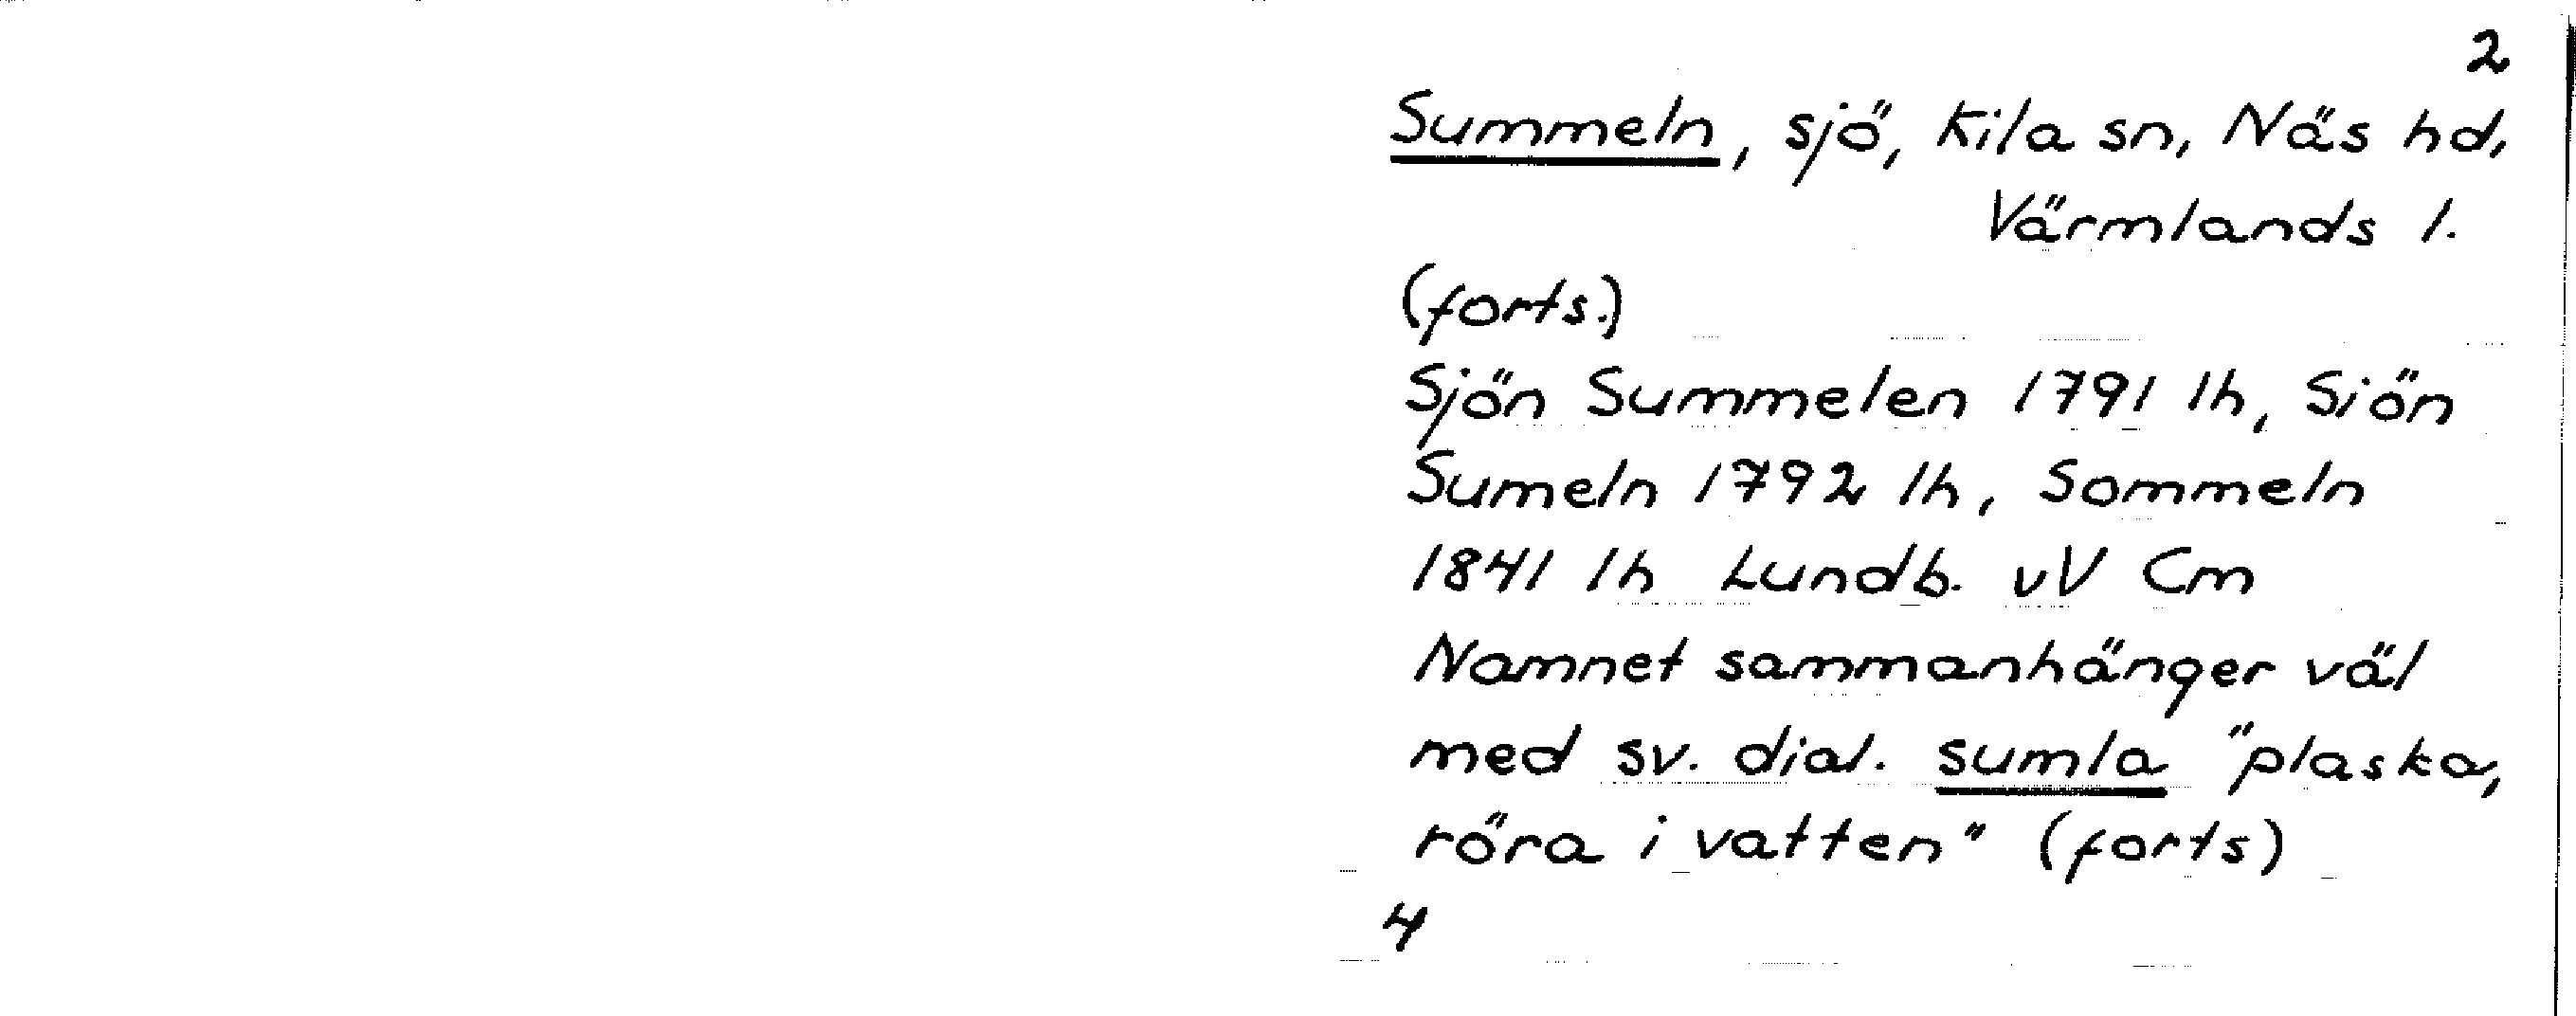 2
Summeln, sjö, Kila sn, Näs hd,
Värmlands l.
(forts.)
Sjön Summelen 1791 lh, Siön
Sumeln 1792 lh, Sommeln
1841 lh Lundb. vV Cm
Namnet sammanhänger väl
med sv. dial. sumla "plaska,
röra i vatten" (forts)
4